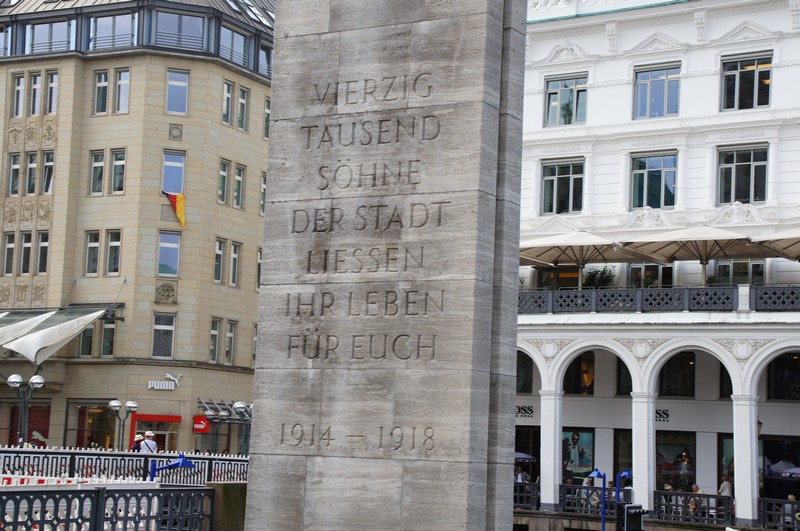 VIERZIG
TAUSEND
SÖHNE
DER STADT
LIESSEN
IHR LEBEN
FÜR EUCH
1914 – 1918
PUMA
OSS
OSS